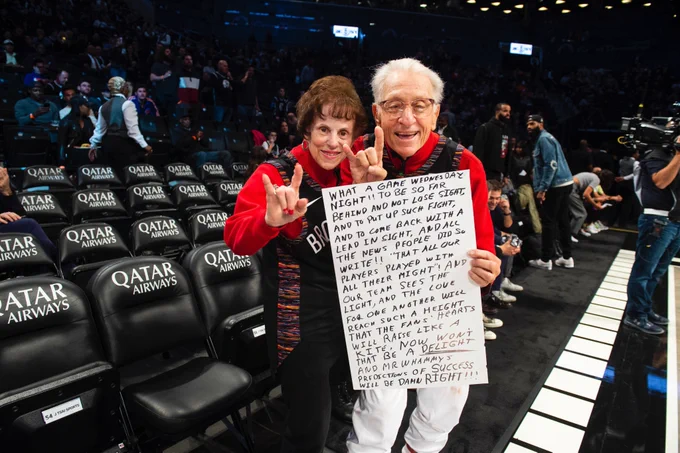 WHAT A GAME WEDNESDAY
NIGHT!! TO BE SO FAR
BEHIND AND NOT LOSE SIGHT,
AND TO PUT UP SUCH FIGHT,
AND TO COME BACK WITH A
LEAD IN SIGHT, AND ALL
THE NEWS PEOPLE DID SO
WRITE!! "THAT ALL OUR
PLAYERS PLAYED WITH
ALL THEIR MIGHT"! AND
OUR TEAM SEES THE
LIGHT, AND THE LOVE
FOR ONE ANOTHER WILL
REACH SUCH A HEIGHT,
THAT THE FANS' HEARTS
WILL RAISE LIKE A
KITE. NOW WON'T
THAT BE A DELIGHT
AND MR WHAMMY'S
PREDICTIONS OF SUCCESS
WILL BE DAMN RIGHT!!!
BRO
QATAR
AIRWAYS
QATAR
AIRWAYS
QATAR
AIRWAYS
QATAR
AIRWAYS
QATAR
AIRWAYS
QATAR
AIRWAYS
QATAR
AIRWAYS
QATAR
AIRWAYS
QATAR
AIRWAYS
QATAR
AIRWAYS
QATAR
AIRWAYS
QATAR
AIRWAYS
QATAR
AIRWAYS
QATAR
AIRWAYS